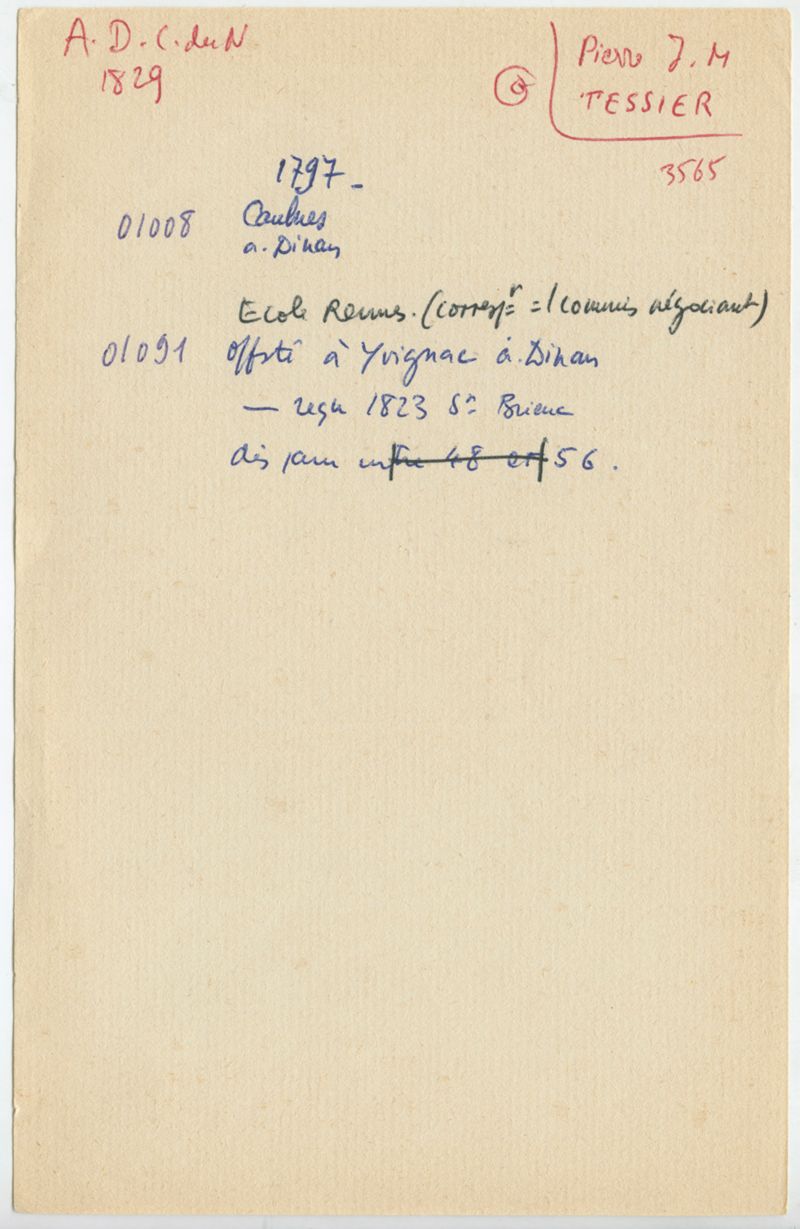 A. D. C. du N
1829
Pierre J. M
TESSIER
3565
1797 -
01008 Caulnes
a. Dinan
Ecole Rennes. (corresp.r = 1 commis négociant)
01091 offsté à Yvignac a. Dinan
— regu 1823 St Brieuc
dès jam entre 48 et 56.